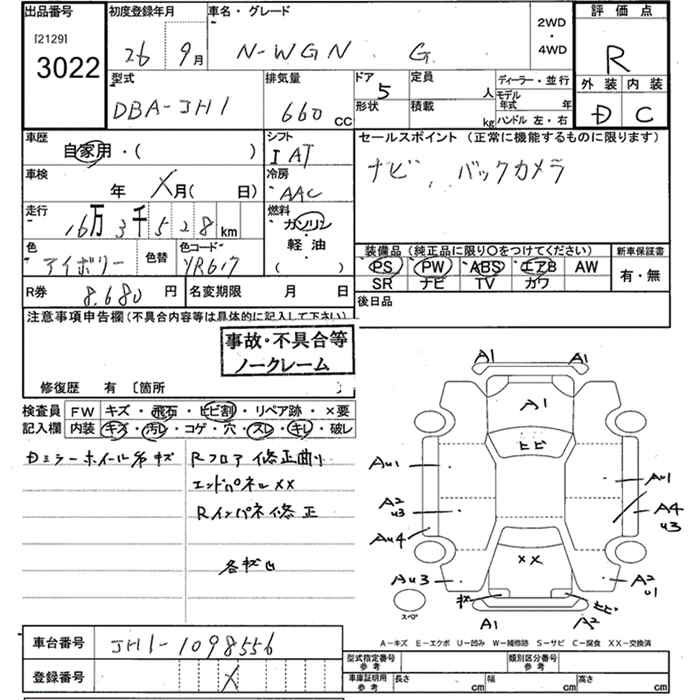 出品番号 初度登録年月 車名・グレード 2WD・4WD 評価点
[2129]
3022
26 9月 N-WGN G R
型式 排気量 ドア 定員 ディーラー・並行 外装 内装
DBA-JH1 660CC 5 人 モデル年式 年 D C
形状 積載 kg ハンドル 左・右
車歴 シフト セールスポイント (正常に機能するものに限ります)
自家用・( ) IAT ナビ、バックカメラ
車検 冷房
年 X月( 日) AAC
走行 燃料
16万3千528km ガソリン
軽油
( )
色 色替 色コード
アイボリー YR617
装備品 (純正品に限り○をつけてください) 新車保証書
PS PW ABS エアB AW 有・無
SR ナビ TV カワ
R券 8,680円 名変期限 月 日 後日品
注意事項申告欄(不具合内容等は具体的に記入して下さい)
事故・不具合等
ノークレーム
修復歴 有 〔箇所 〕
検査員 FW キズ・飛石・ヒビ割・リペア跡・×要
記入欄 内装 キズ・汚レ・コゲ・穴・スレ・キレ・破レ
Dミラーホイール等キズ Rフロア修正曲り
エンドパネルXX
Rインパネ修正
A1 A1
A1
ヒビ
Au1 Au1
A2 u3 A4 u3
Au4
XX
Au3 A2 u1
ヒビ
スペア
A1 A2
A-キズ E-エクボ U-凹み W-補修跡 S-サビ C-腐食 XX-交換済
車台番号 JH1-1098556
登録番号 X
型式指定番号 参考 類別区分番号 参考
車庫証明用 参考 長さ cm 幅 cm 高さ cm